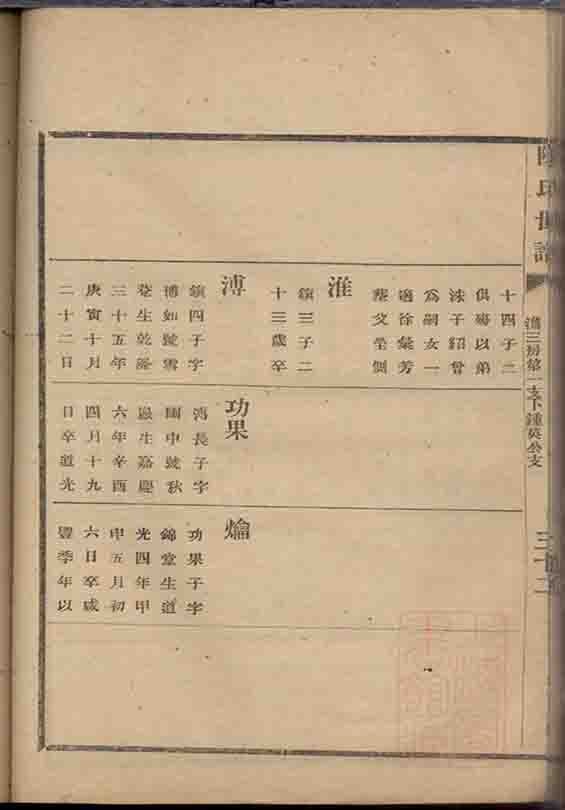 氏世譜
三房第一支下鍾英公支
十四子二
俱殤以弟
洙子紹曾
為嗣女一
適徐彙芳
葬父塋側
淮
鎮三子二
十三歲卒
溥
鎮四子字
博如號雪
菴生乾隆
三十五年
庚寅十月
二十二日
功果
溥長子字
國申號秋
巖生嘉慶
六年辛酉
四月十九
日卒道光
爚
功果子字
錦堂生道
光四年甲
申五月初
六日卒咸
豐季年以